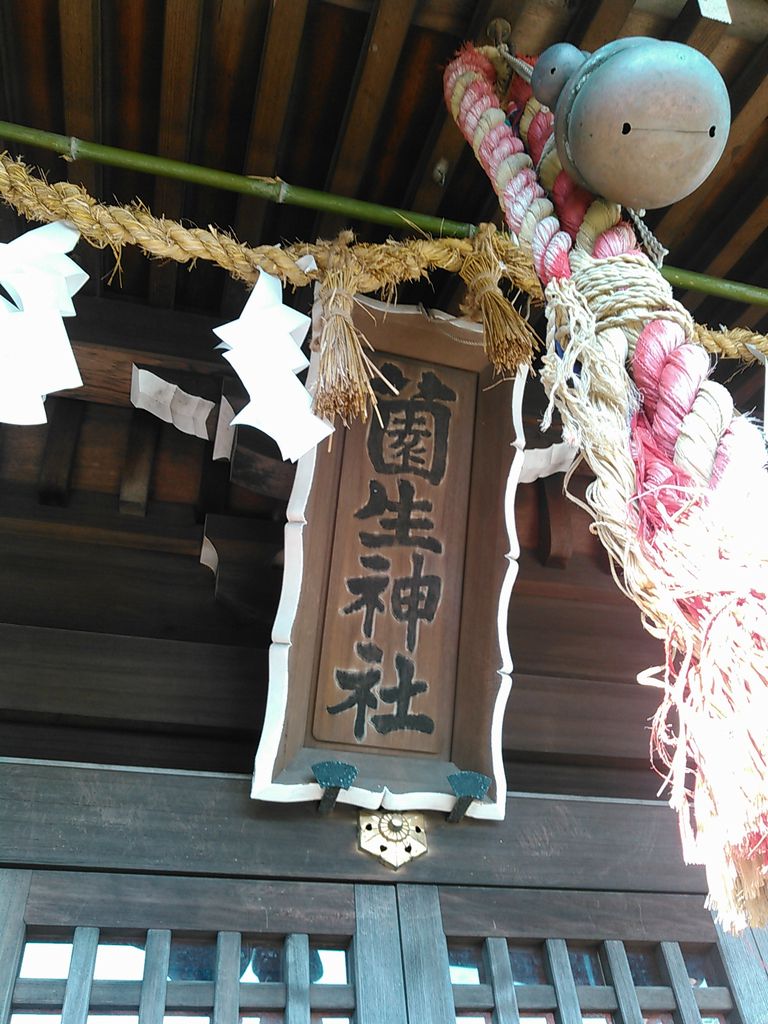 薗生神社